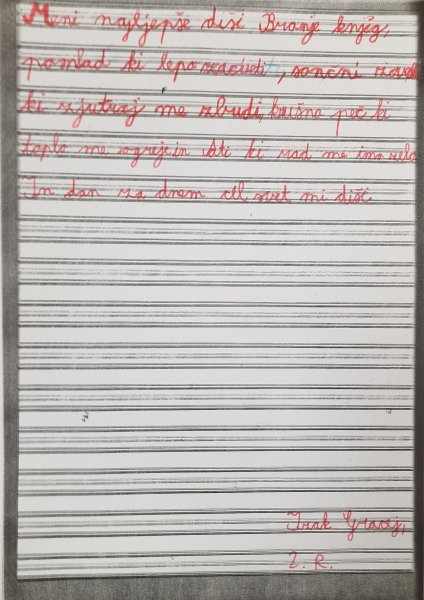 Meni najljepše diši Branje knjig,
pomlad ki lepo zadiši, sončni vzhod
ki zjutraj me zbudi, krušna peč ki
toplo me ogreje in Ati ki rad me ima zelo
In dan za dnem cel svet mi diši.
Irak Gracej,
2. R.